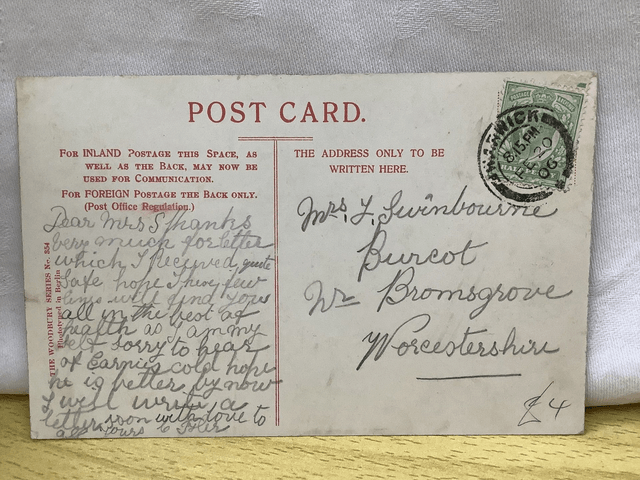 POST CARD.
FOR INLAND POSTAGE THIS SPACE, AS
WELL AS THE BACK, MAY NOW BE
USED FOR COMMUNICATION.
FOR FOREIGN POSTAGE THE BACK ONLY.
(Post Office Regulation.)
THE ADDRESS ONLY TO BE
WRITTEN HERE.
WARWICK
8.15 PM
20
Mrs. F. Swinbourne
Burcot
Nr Bromsgrove
Worcestershire
£4
THE WOODBURY SERIES No. 354
Printed in Berlin
Dear Mrs S Thanks
very much for letter
which I received quite
safe hope these few
lines will find yous
all in the best of
health as I am my
self sorry to hear
of Earnies cold hope
he is better by now
I will write a
letter soon with love to
all Yours